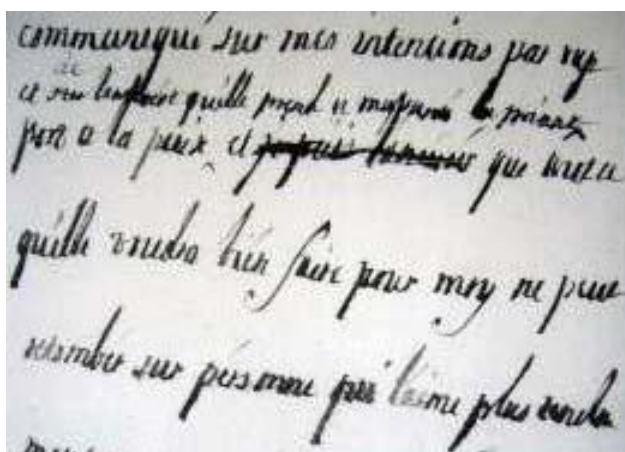 communiqué sur mes intentions par rap
et sur qu'elle prend a la
port a la paix, et que tout ce
qu'elle voudra bien faire pour moy ne peut
retomber sur personne qui l'aime plus tendre